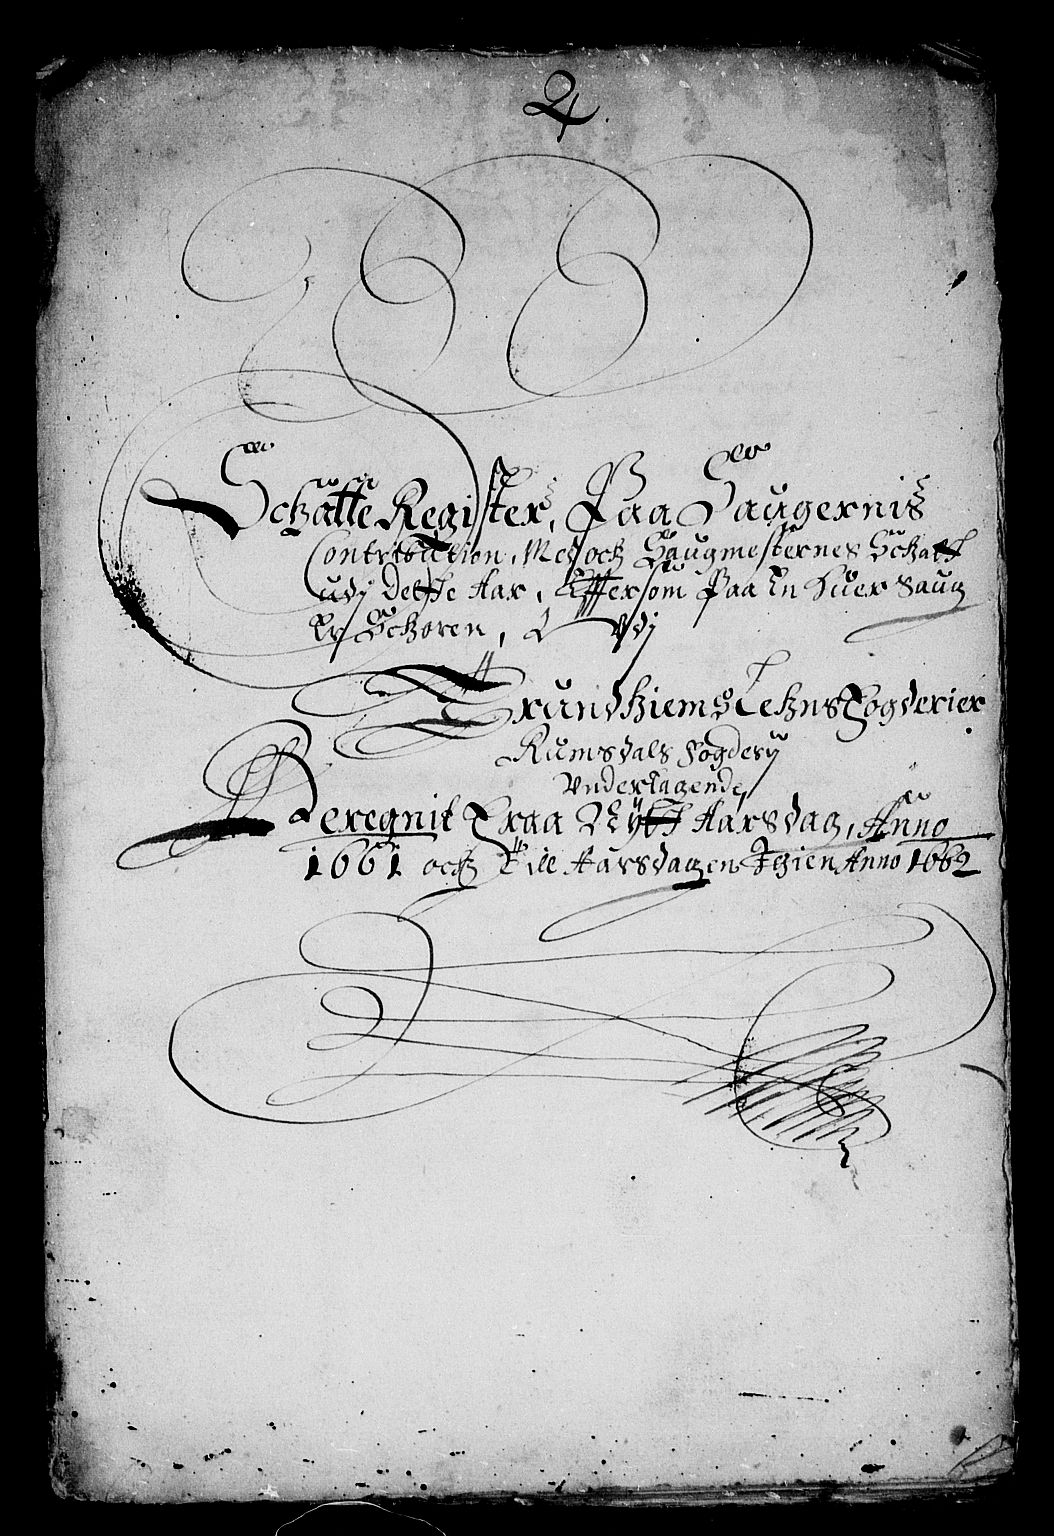 2
Schatte Register, Paa Saugernis
Contribution, Med och Saugmesternes Schatt
udj Dette Aar, Effersom Paa En huer Saug
Er Schoren, Vdj
Trundhiems Lehns Fogderier
Rumsdals Fogderij
Underlagende
Beregnit Fraa Nytt Aarsdag, Anno
1661 och Till Aarsdagen Igien Anno 1662